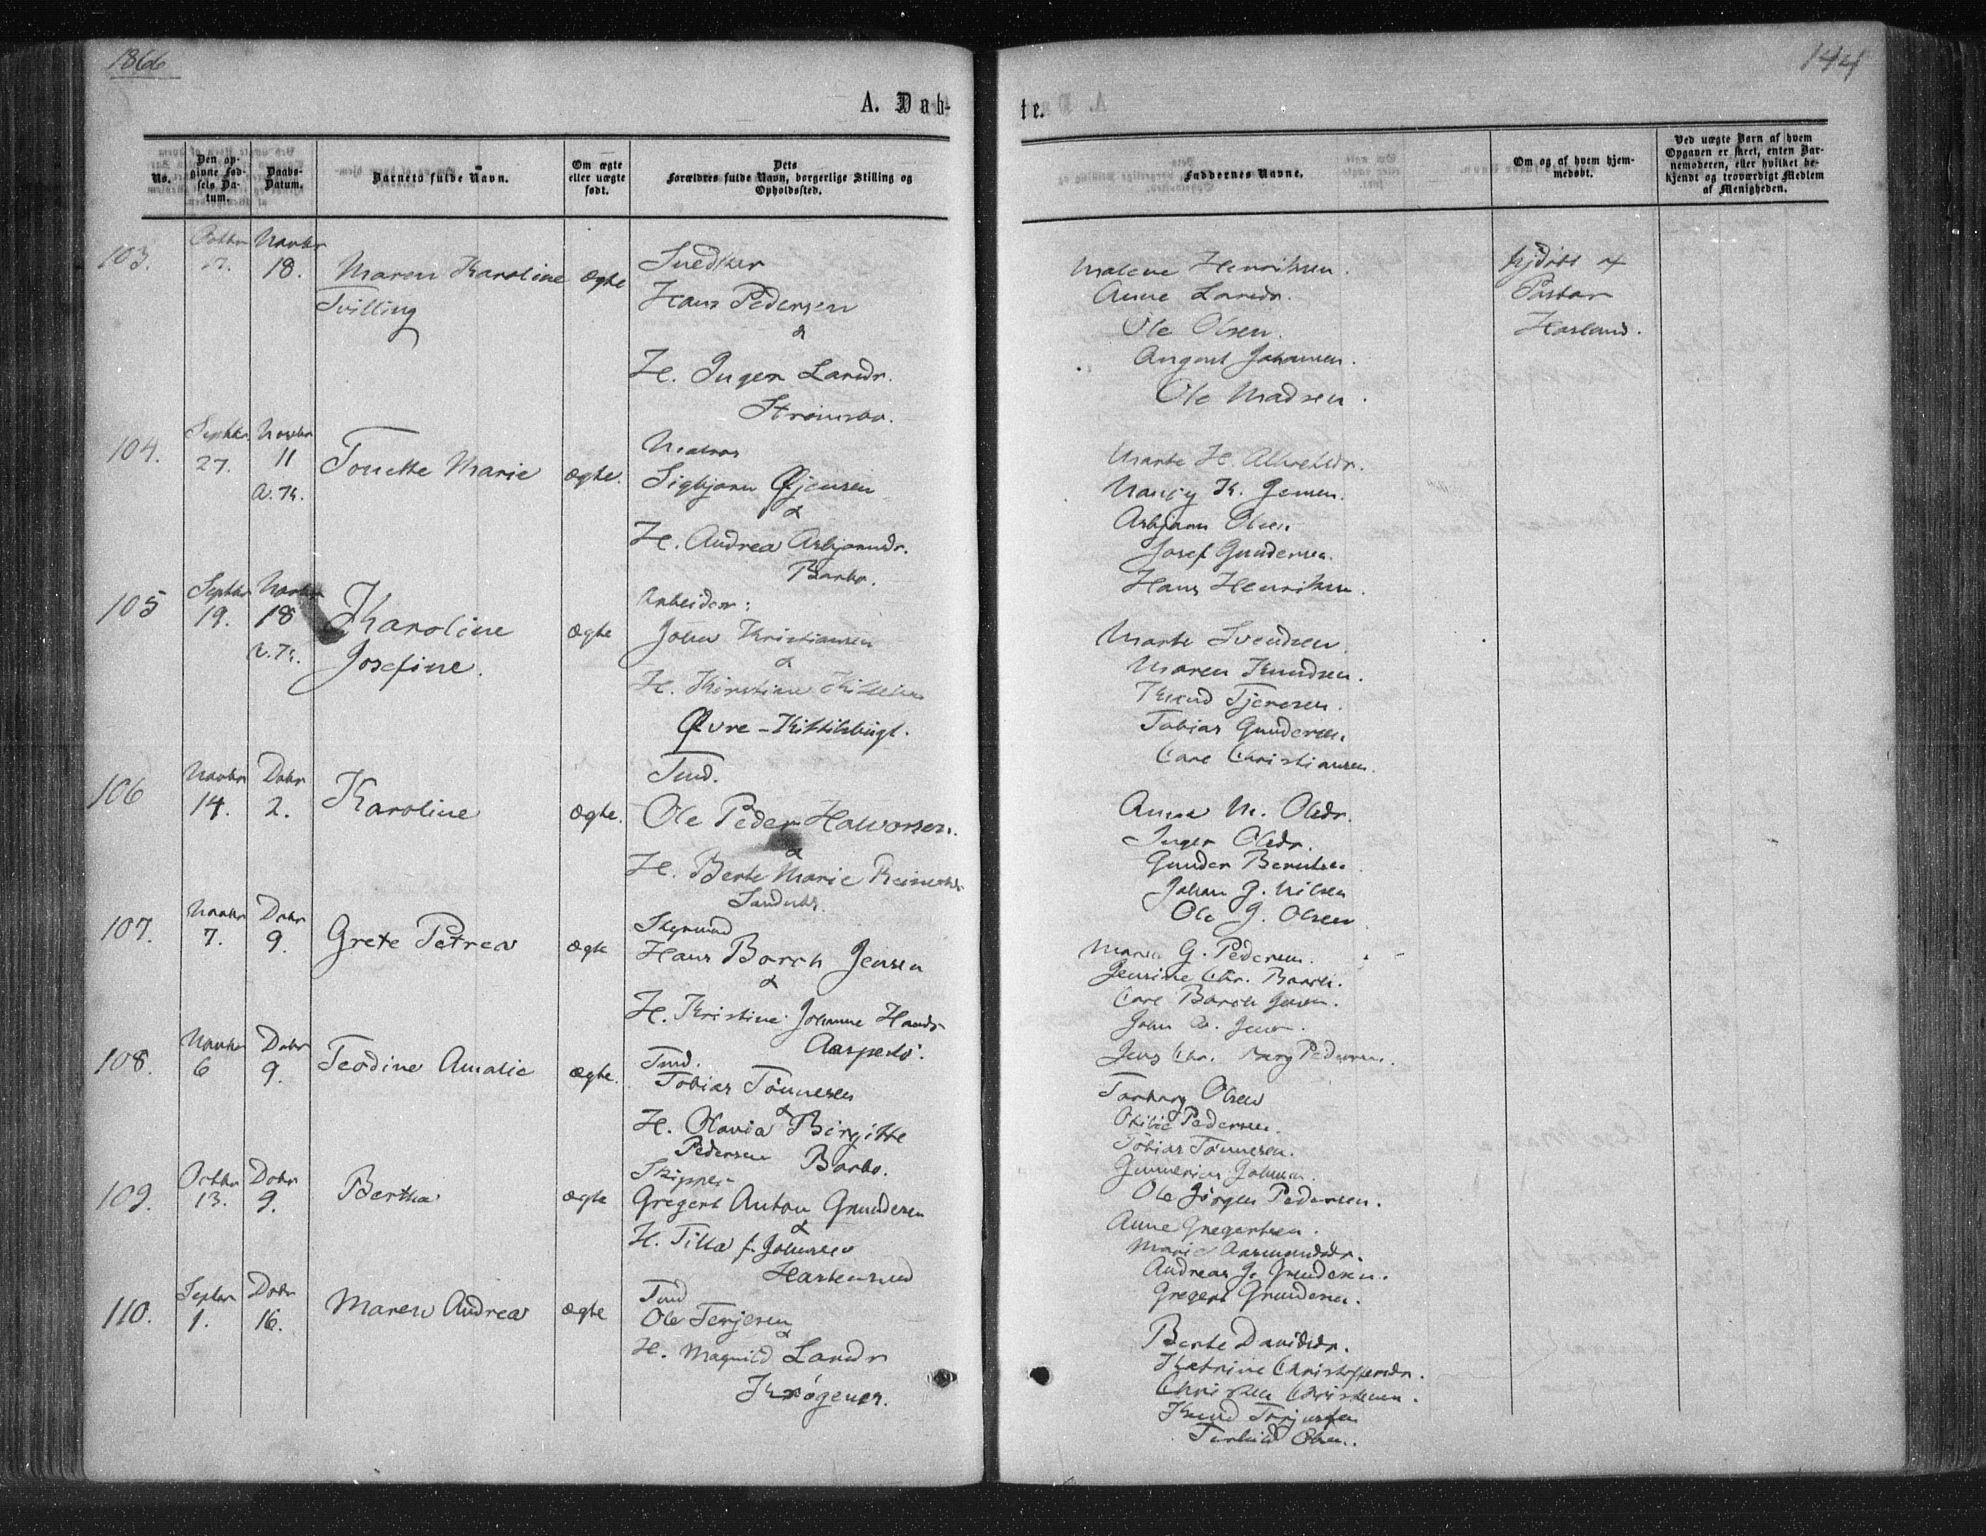 1866
144
A. Døb-
te.
No.
Den op-
givne Fød-
sels Da-
tum.
Daabs-
Datum.
Barnets fulde Navn.
Om ægte
eller uægte
født.
Dets
Forældres fulde Navn, borgerlige Stilling og
Opholdssted.
Faddernes Navne.
Om og af hvem hjem-
medøbt.
Ved uægte Barn af hvem
Opgaven er skeet, enten Bar-
nemoderen, eller hvilket be-
kjendt og troværdigt Medlem
af Menigheden.
103. Octbr Novbr 18. Maren Karoline ægte Snedker
Tvilling Hans Pedersen
&
H. Inger Larsdr.
Strømsbo.
Malene Henriksen.
Anne Larsdr.
Ole Olsen.
August Johansen.
Ole Madsen.
hjdøbt af
Pastor
Harland.
104. Septbr 27. Novbr 11 Tonette Marie ægte. Matros
Sigbjørn Øjensen
&
H. Andrea Asbjørnsdr.
Barbo.
Marte H. Alvelsdr.
Nancy K. Jensen.
Asbjørn Olsen
Josef Gundersen.
Hans Henriksen.
105 Septbr 19. Novbr 18 Karoline
Josefine. ægte Arbeider:
John Kristiansen
&
H. Kirstine
Øvre-Kittilsbugt.
Marte Svendsen.
Maren Knudsen.
Knud Tjerесen.
Tobias Gundersen.
Carl Christiansen.
106 Novbr 14. Dcbr 2. Karoline ægte. Tmd.
Ole Peder Halvorsen.
&
H. Berte Marie
Anna M. Olsdr.
Inger Olsdr.
Gunder Berntsen
Johan G. Nilsen
Ole G. Olsen
107. Novbr 7. Dcbr 9. Grete Petrea ægte Styrmand
Hans Barth Jensen
&
H. Kristine Johanne Hansdr
Maria G. Pedersen.
Jensine Chr. Barth.
Carl Barth Jensen.
John Jensen.
Jens Chr. Berg Pedersen.
108. Novbr 6 Dcbr 9. Teodine Amalie ægte. Tmd.
Tobias Tønnesen
&
H. Olavia Birgitte
Pedersen Barbo.
Torborg Olsen
Otilie Pedersen.
Tobias Tønnesen.
Ole Jørgen Pedersen.
109. Octbr 13. Dcbr 9. Bertha ægte Skipper
Gregert Anton Gundersen
&
H. Tilla f. Johnsen
Hastensund
Anne Gregertsen.
Marie Aasmundsdr.
Andreas G. Gundersen.
Gregert Gundersen.
110. Septbr 1. Dcbr 16. Maren Andrea ægte Tmd
Ole Terjesen
&
H. Magnild Larsdr
Krøgenes.
Berte Davidsdr.
Katrine Christoffersdr.
Christen Christensen.
Knud Terjesen
Terkild Olsen.